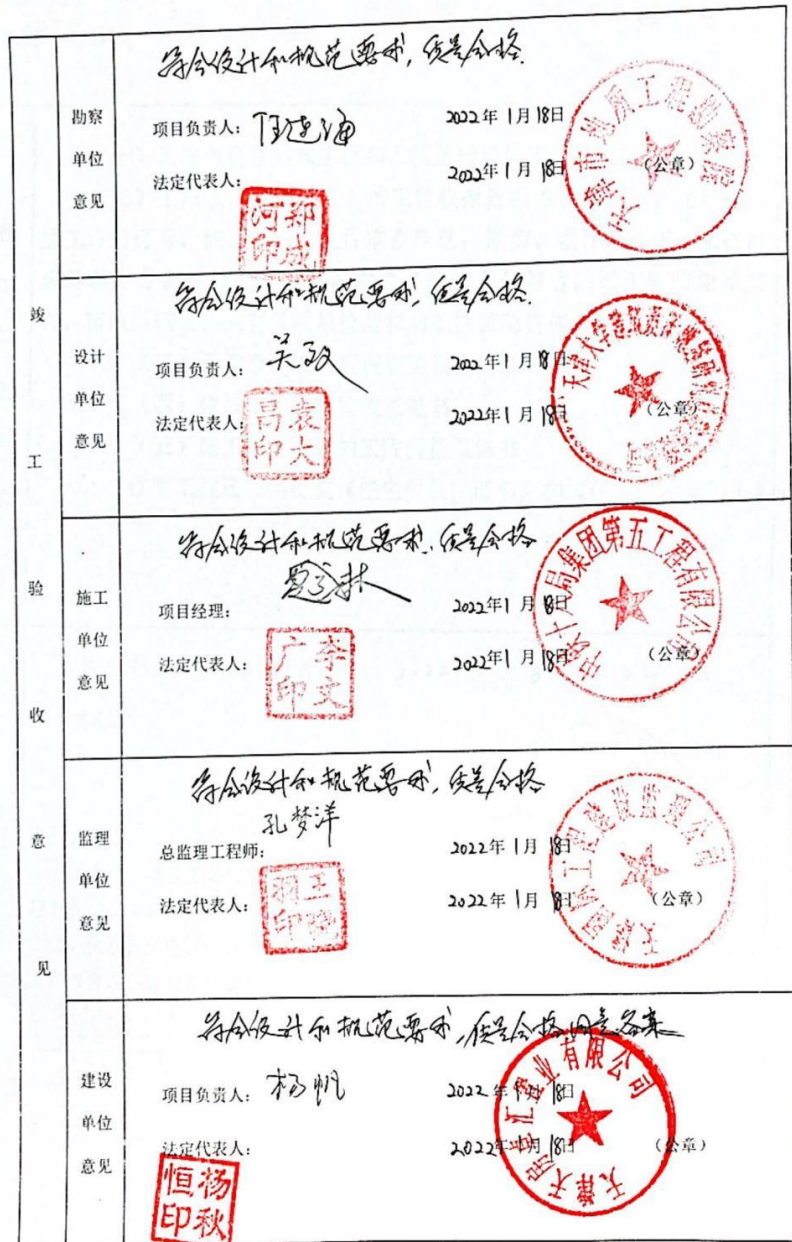 竣工验收意见
勘察单位意见
符合设计和规范要求,质量合格.
项目负责人: 2022年1月18日
法定代表人: 2022年1月18日 (公章)
郑成河印
天津市地质工程勘察院
设计单位意见
符合设计和规范要求,质量合格.
项目负责人: 2022年1月18日
法定代表人: 2022年1月18日 (公章)
袁大昌印
天津大学建筑设计规划研究
施工单位意见
符合设计和规范要求,质量合格
项目经理: 2022年1月18日
法定代表人: 2022年1月18日 (公章)
李文广印
局集团第五工程有限公司
监理单位意见
符合设计和规范要求,质量合格
总监理工程师: 孔梦洋 2022年1月18日
法定代表人: 2022年1月18日 (公章)
王 羽印
工程建设监理公司
建设单位意见
符合设计和规范要求,质量合格同意备案
项目负责人: 杨帆 2022年1月18日
法定代表人: 2022年1月18日 (公章)
杨秋恒印
汇置业有限公司